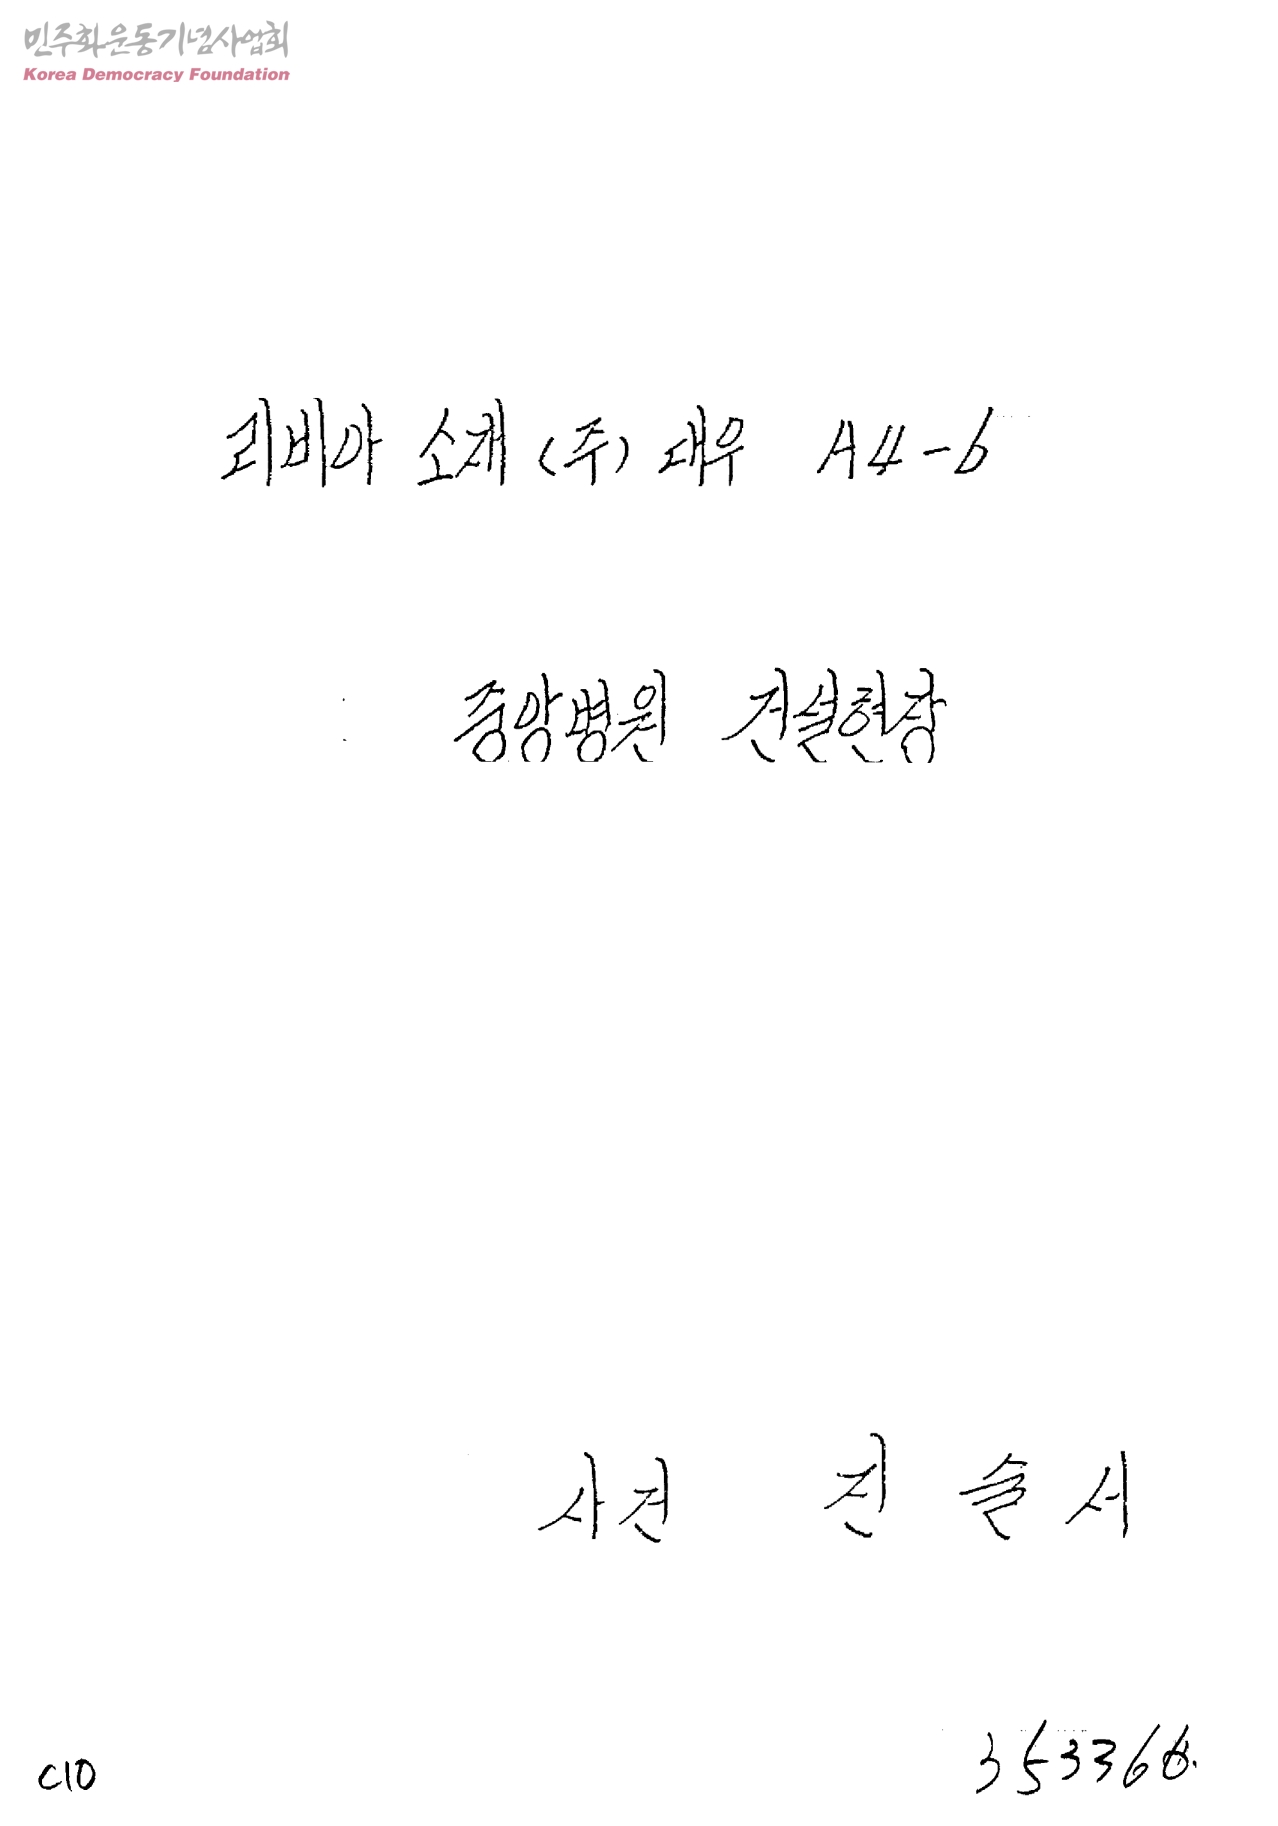 민주화운동기념사업회
Korea Democracy Foundation
리비아 소재 (주) 대우 A4-6
중앙병원 건설현장
사건 진술서
C10
353366.